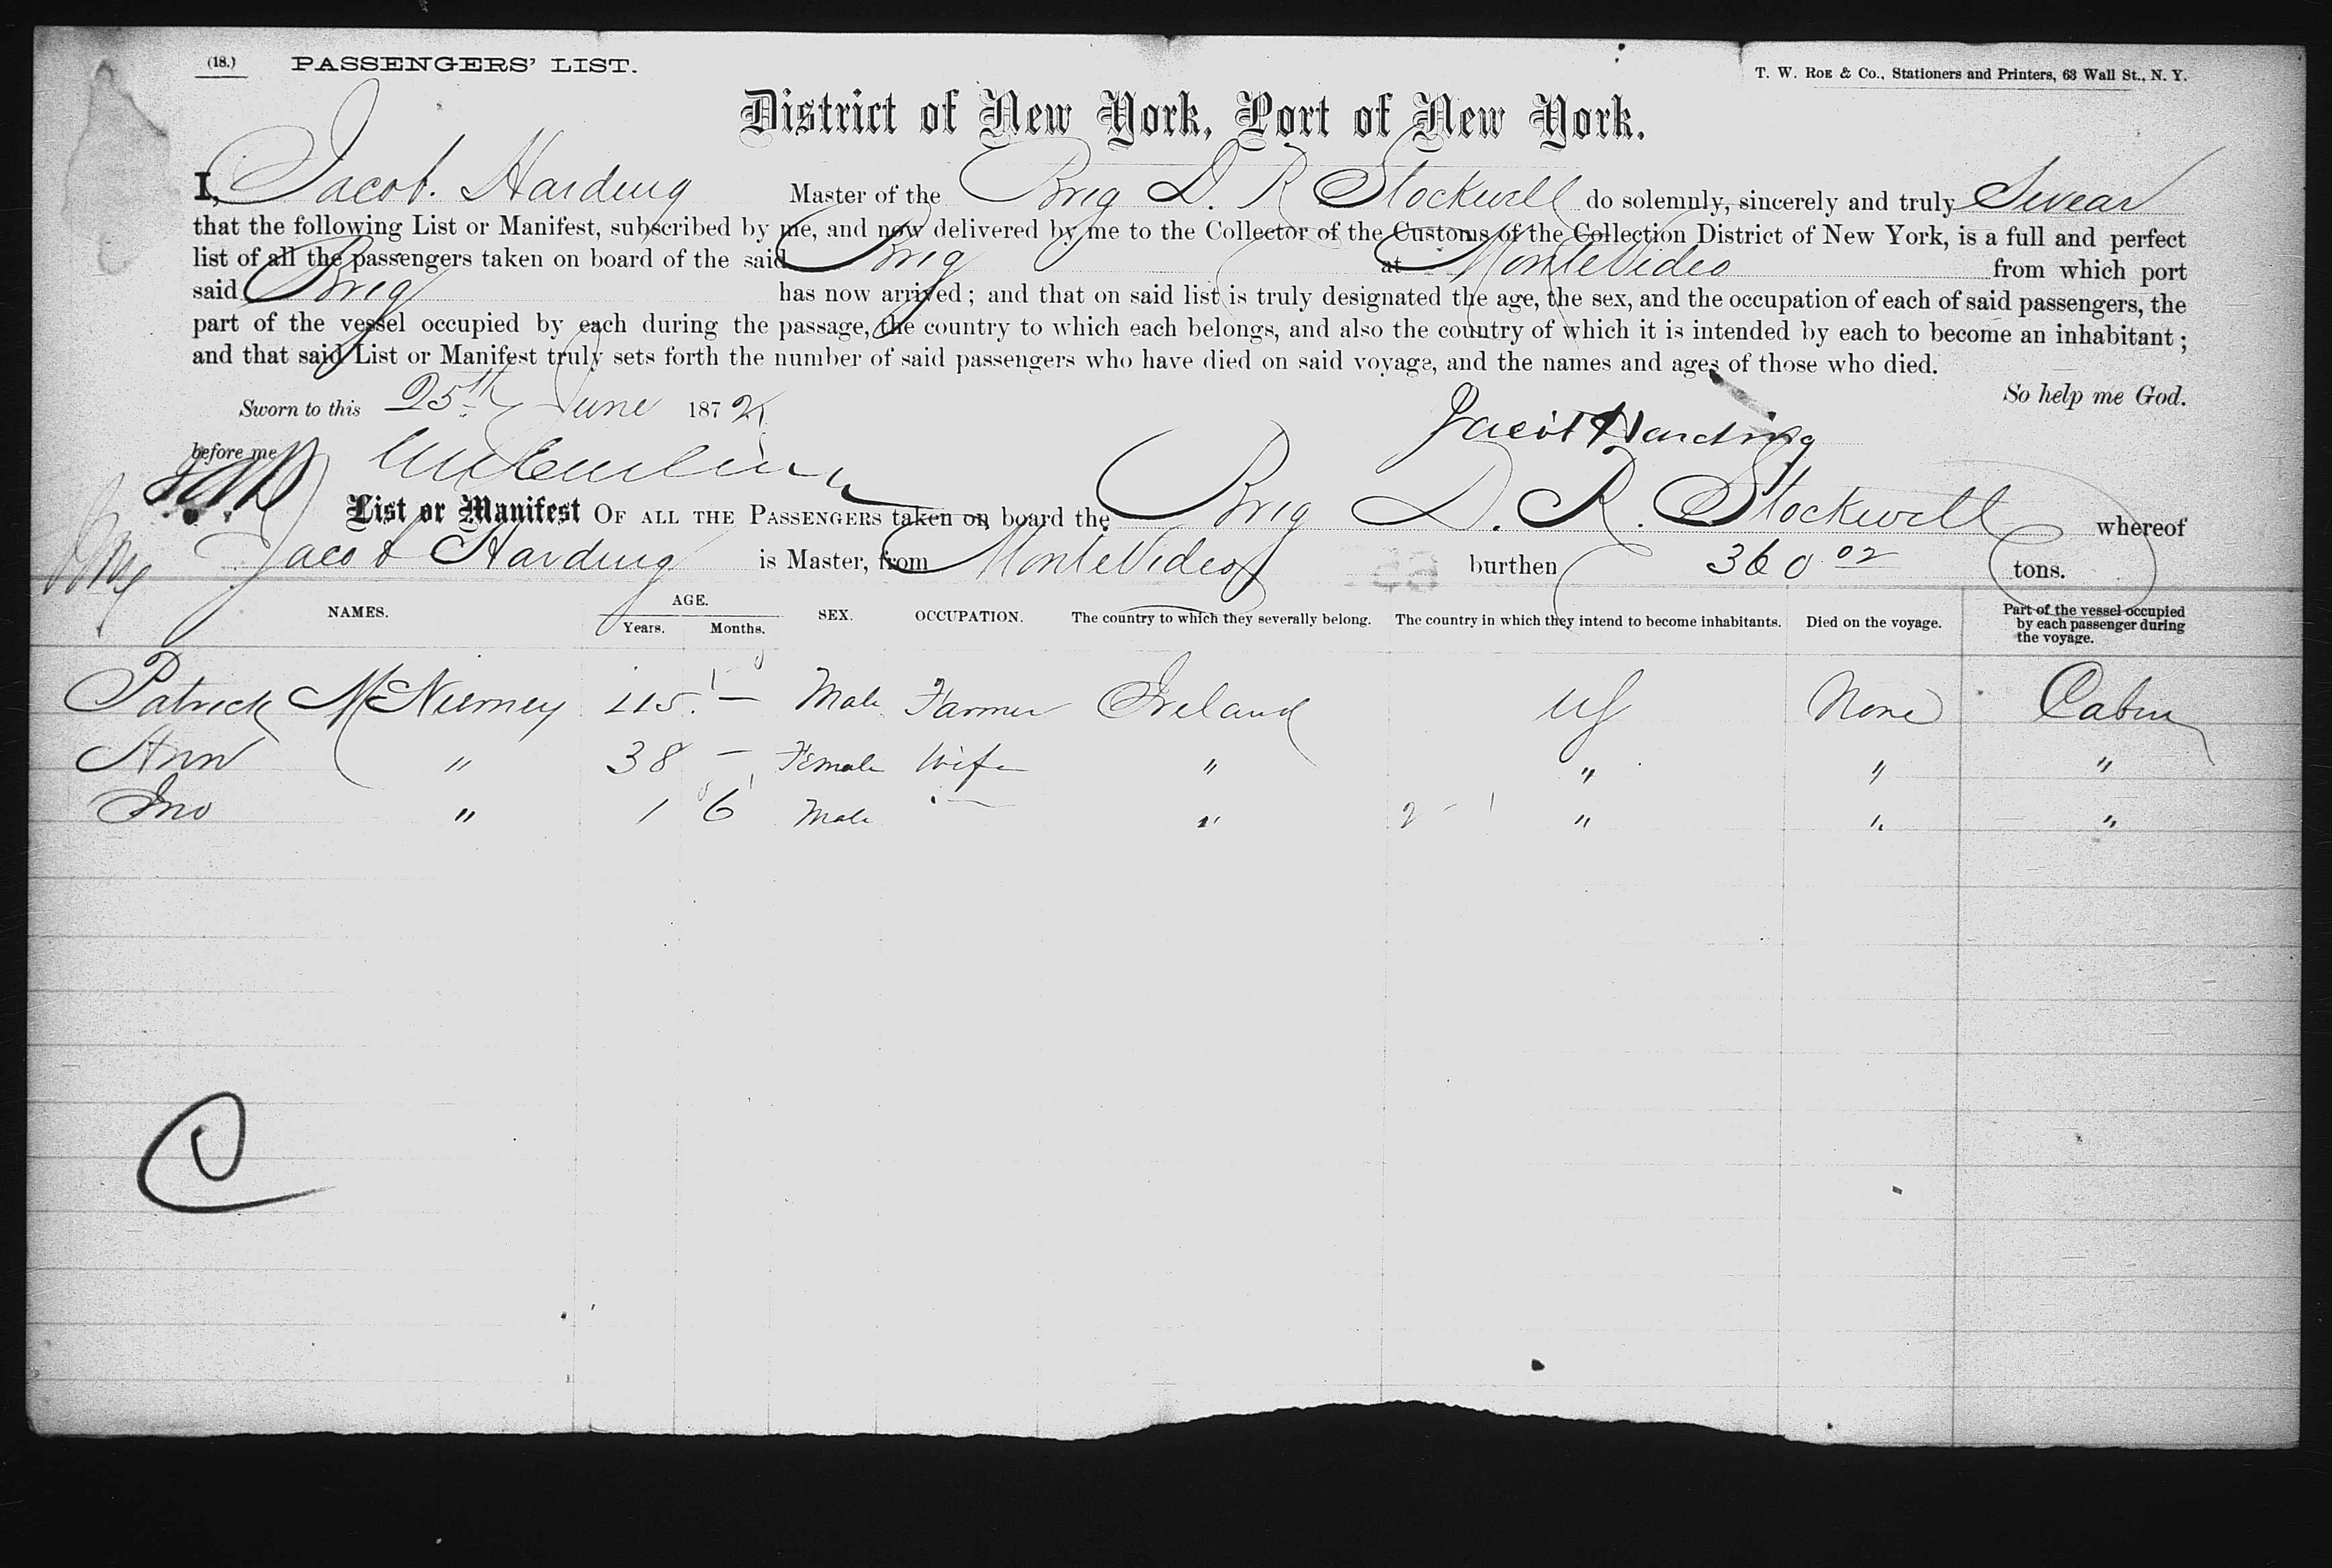 (18.) PASSENGERS' LIST.
T. W. Roe & Co., Stationers and Printers, 63 Wall St., N. Y.
District of New York, Port of New York.
I, Jacob Harding Master of the Brig D. R Stockwell do solemnly, sincerely and truly Swear
that the following List or Manifest, subscribed by me, and now delivered by me to the Collector of the Customs of the Collection District of New York, is a full and perfect
list of all the passengers taken on board of the said Brig at MonteVideo from which port
said Brig has now arrived; and that on said list is truly designated the age, the sex, and the occupation of each of said passengers, the
part of the vessel occupied by each during the passage, the country to which each belongs, and also the country of which it is intended by each to become an inhabitant;
and that said List or Manifest truly sets forth the number of said passengers who have died on said voyage, and the names and ages of those who died.
So help me God.
Sworn to this 25th June 1872
Jacob Harding
before me
List or Manifest OF ALL THE PASSENGERS taken on board the Brig D. R. Stockwell whereof
Jacob Harding is Master, from MonteVideo burthen 360 02 tons.
NAMES. AGE. Years. Months. SEX. OCCUPATION. The country to which they severally belong. The country in which they intend to become inhabitants. Died on the voyage. Part of the vessel occupied by each passenger during the voyage.
Patrick McNierney 45 — Male Farmer Ireland US None Cabin
Ann " 38 — Female Wife " " " "
Jno " 1 6 Male — " " " "
C